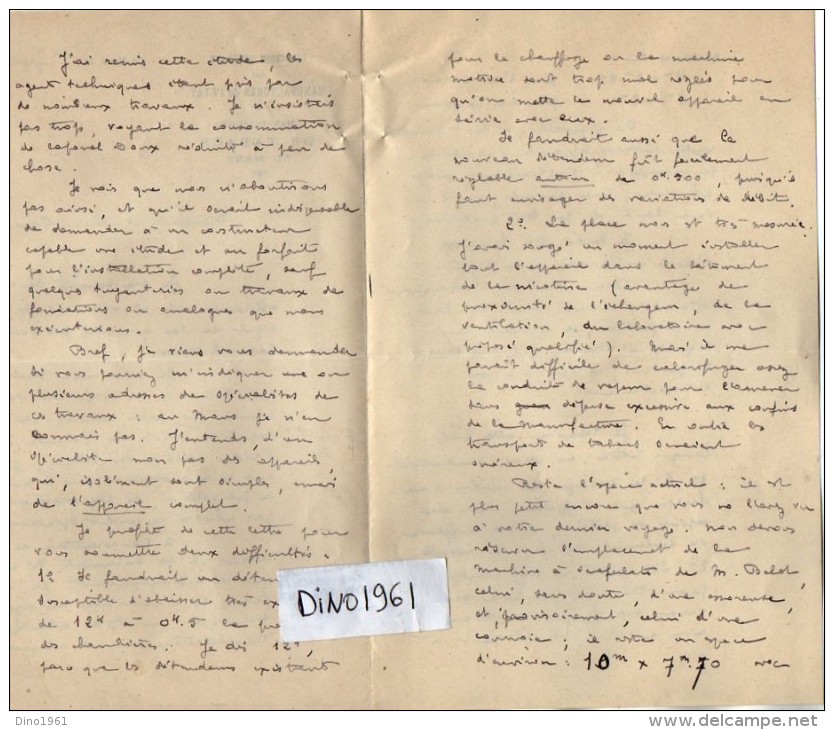 J'ai remis cette étude, les
agents techniques étant pris par
de nombreux travaux. Je n'insistais
pas trop, voyant la consommation
de réduite à peu de
chose.
Je vois que nous n'aboutissons
pas ainsi, et qu'il serait indispensable
de demander à un constructeur
capable une étude et un forfait
pour l'installation complète, sauf
quelques tuyauteries ou travaux de
fondations ou analogues que nous
exécuterions.
Bref, je viens vous demander
si vous pourriez m'indiquer une ou
plusieurs adresses de spécialistes de
ces travaux : au Mans je n'en
connais pas. J'entends, d'un
spécialiste non pas des appareils,
qui, isolément sont simples, mais
de l'appareil complet.
Je profite de cette lettre pour
vous soumettre deux difficultés :
1° Il faudrait un déten
susceptible d'abaisser très ex
de 12k à 0k.5 la pre
des chaudières. Je dis 12k,
parce que les détendeurs existant
pour le chauffage ou la machine
motrice sont trop mal réglés pour
qu'on mette le nouvel appareil en
série avec eux.
Il faudrait aussi que le
nouveau détendeur fût facilement
réglable autour de 0k.500, puisqu'il
faut envisager des variations de débit.
2° La place nous est très mesurée.
J'avais songé un moment installer
tout l'appareil dans le bâtiment
de la nicotine (avantage de
proximité de l'échangeur, de la
ventilation, du laboratoire avec
préposé qualifié). Mais il me
paraît difficile de calorifuger assez
la conduite de vapeur pour l'amener
sans dépense excessive aux confins
de la manufacture. En outre les
transports de tabacs seraient
onéreux.
Reste l'espace actuel : il est
plus petit encore que vous ne l'avez vu
à votre dernier voyage. Nous devons
réserver l'emplacement de la
machine à de M. Belot,
celui, sans doute, d'une essoreuse,
et, provisoirement, celui d'une
; il reste un espace
d'environ : 10m x 7m.70 avec
DiNO1961
Dino1961
delcampe.net